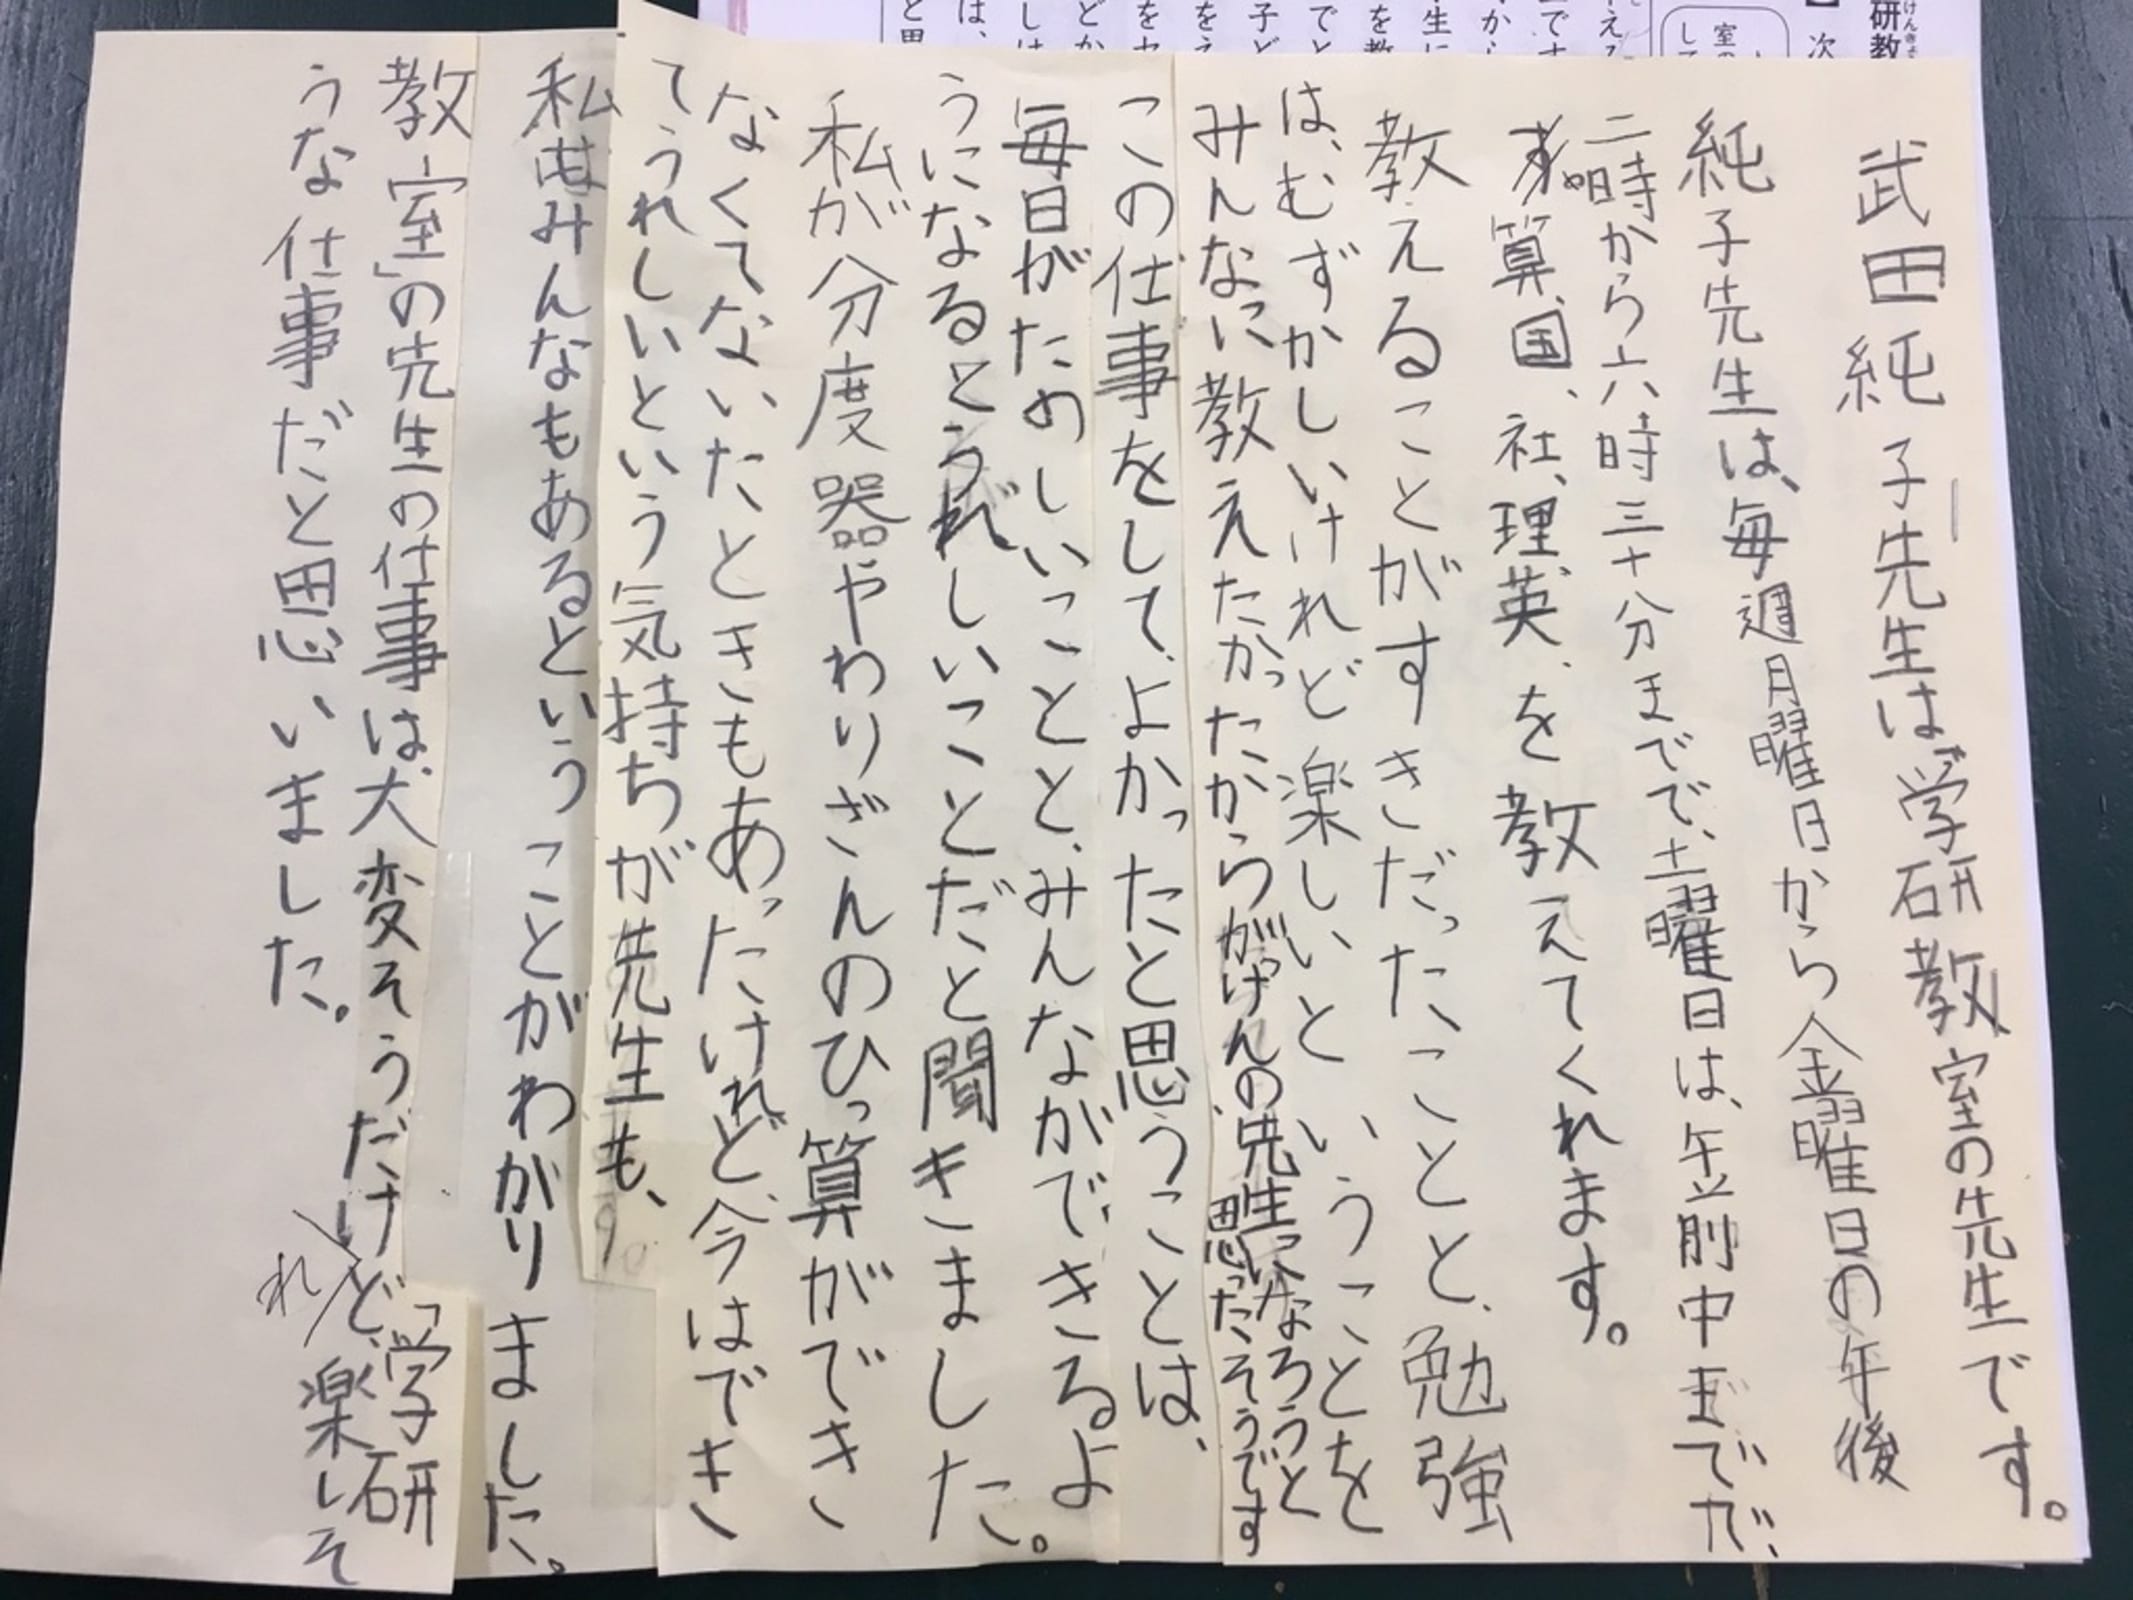 武田純子先生は「学研教室の先生です。
純子先生は、毎週月曜日から金曜日の午後
二時から六時三十分までで、土曜日は、午前中までで、
算、国、社、理、英、を教えてくれます。
教えることがすきだったことと、勉強
は、むずかしいけれど楽しいということを
みんなに教えたかったからがっけんの先生になろうと
思ったそうです
この仕事をして、よかったと思うことは、
毎日がたのしいことと、みんなができるよ
うになるとうれしいことだと聞きました。
私が分度器やわりざんのひっ算ができ
なくてないたときもあったけれど、今はでき
てうれしいという気持ちが先生も、
私もみんなもあるということがわかりました。
「学研
教室」の先生の仕事は、大変そうだけ
れ
ど、楽しそ
うな仕事だと思いました。
研教
けんきょ
次